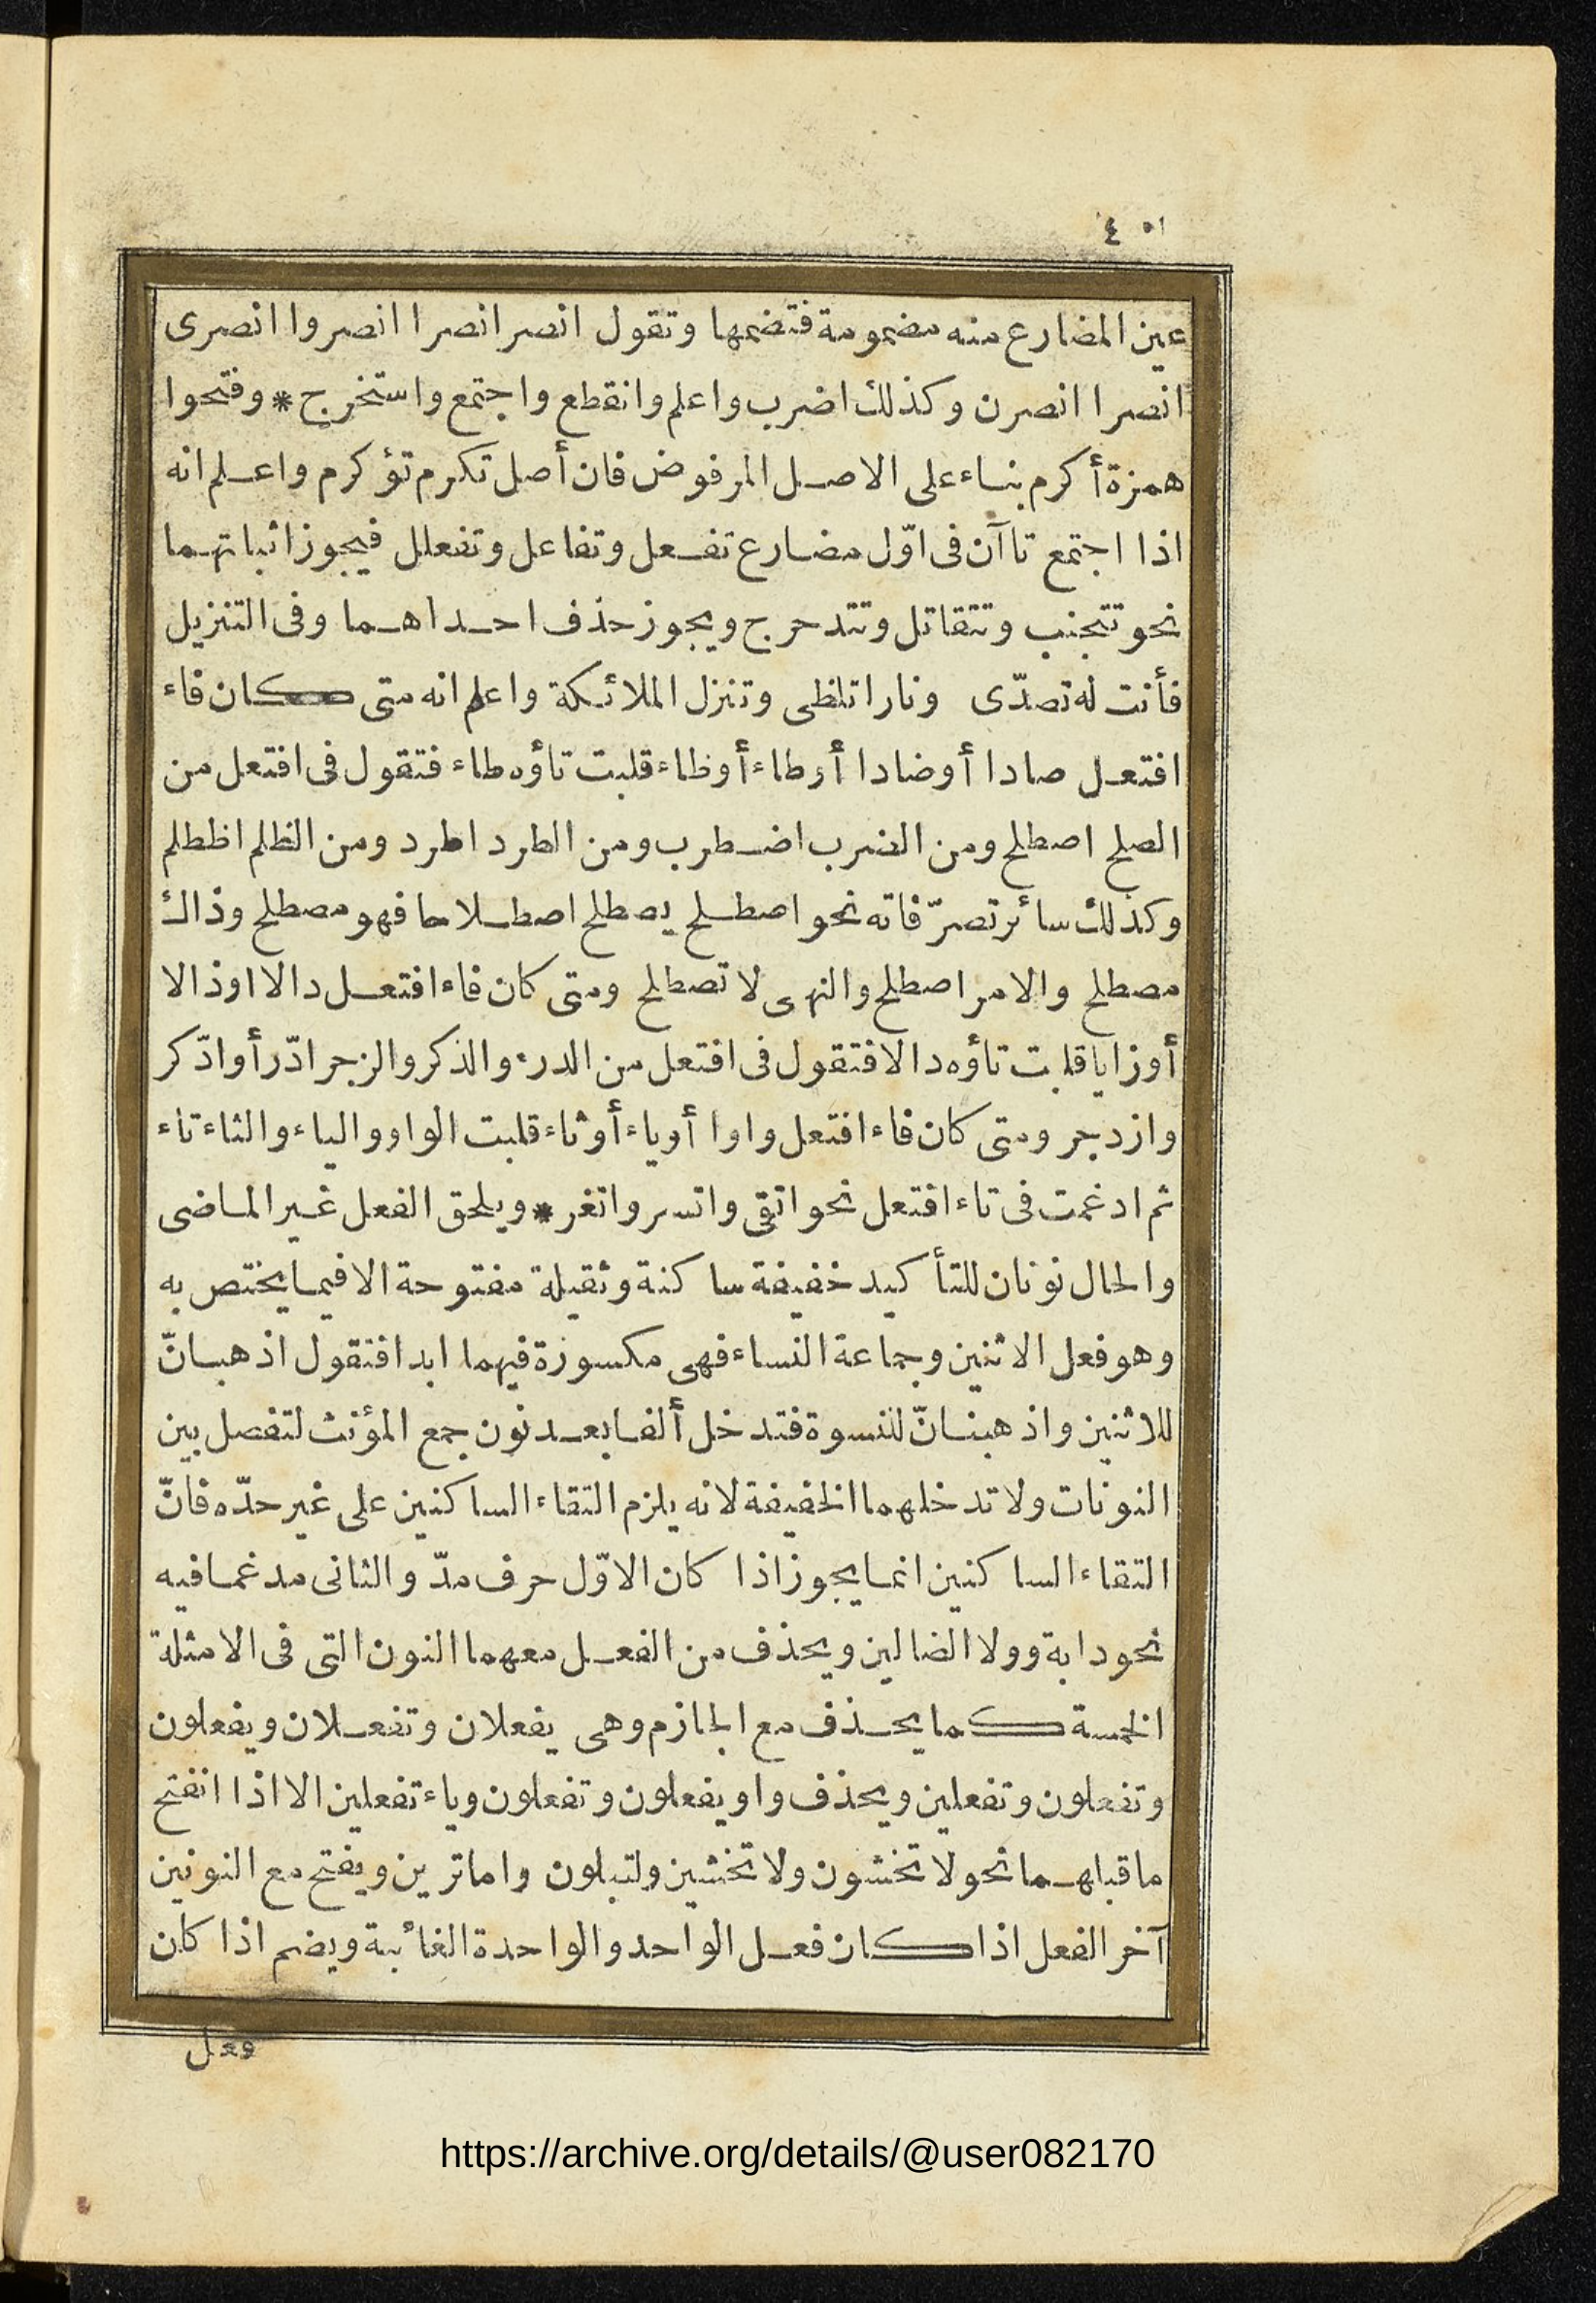 ٤٥١
عين المضارع منه مضمومة فتضمها وتقول انصر انصرا انصروا انصرى
انصرا انصرن وكذلك اضرب واعلم وانقطع واجتمع واستخرج * وفتحوا
همزة أكرم بناء على الاصل المرفوض فان أصل تكرم تؤكرم واعلم انه
اذا اجتمع تاآن فى اوّل مضارع تفعل وتفاعل وتفعلل فيجوز اثباتهما
نحو تتجنب وتتقاتل وتتدحرج ويجوز حذف احداهما وفى التنزيل
فأنت له تصدّى ونارا تلظى وتنزل الملائكة واعلم انه متى كان فاء
افتعل صادا أو ضادا أو طاء أو ظاء قلبت تاؤه طاء فتقول فى افتعل من
الصلح اصطلح ومن الضرب اضطرب ومن الطرد اطرد ومن الظلم اظطلم
وكذلك سائر تصرّفاته نحو اصطلح يصطلح اصطلاحا فهو مصطلح وذاك
مصطلح والامر اصطلح والنهى لا تصطلح ومتى كان فاء افتعل دالا او ذالا
أو زايا قلبت تاؤه دالا فتقول فى افتعل من الدرء والذكر والزجر ادّرأ وادّكر
وازدجر ومتى كان فاء افتعل واوا أو ياء أو ثاء قلبت الواو والياء والثاء تاء
ثم ادغمت فى تاء افتعل نحو اتقى واتسر واتغر * ويلحق الفعل غير الماضى
والحال نونان للتأكيد خفيفة ساكنة وثقيلة مفتوحة الا فيما يختص به
وهو فعل الاثنين وجماعة النساء فهى مكسورة فيهما ابدا فتقول اذهبانّ
للاثنين واذهبنانّ للنسوة فتدخل ألفا بعد نون جمع المؤنث لتفصل بين
النونات ولا تدخلهما الخفيفة لانه يلزم التقاء الساكنين على غير حدّه فانّ
التقاء الساكنين انما يجوز اذا كان الاوّل حرف مدّ والثانى مدغما فيه
نحو دابة وولا الضالين ويحذف من الفعل معهما النون التى فى الامثلة
الخمسة كما يحذف مع الجازم وهى يفعلان وتفعلان ويفعلون
وتفعلون وتفعلين ويحذف واو يفعلون وتفعلون وياء تفعلين الا اذا انفتح
ما قبلهما نحو لا تخشون ولا تخشين ولتبلون واما ترين ويفتح مع النونين
آخر الفعل اذا كان فعل الواحد والواحدة الغائبة ويضم اذا كان
فعل
https://archive.org/details/@user082170